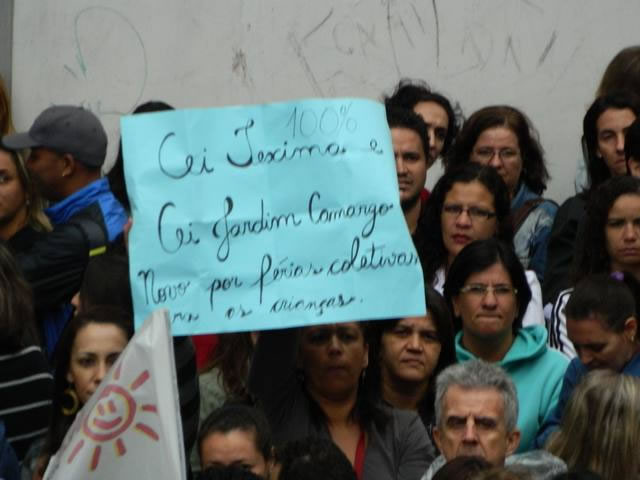 100%
Cei Jexima e
Cei Jardim Camargo
Novo por férias coletivas
pra as crianças.